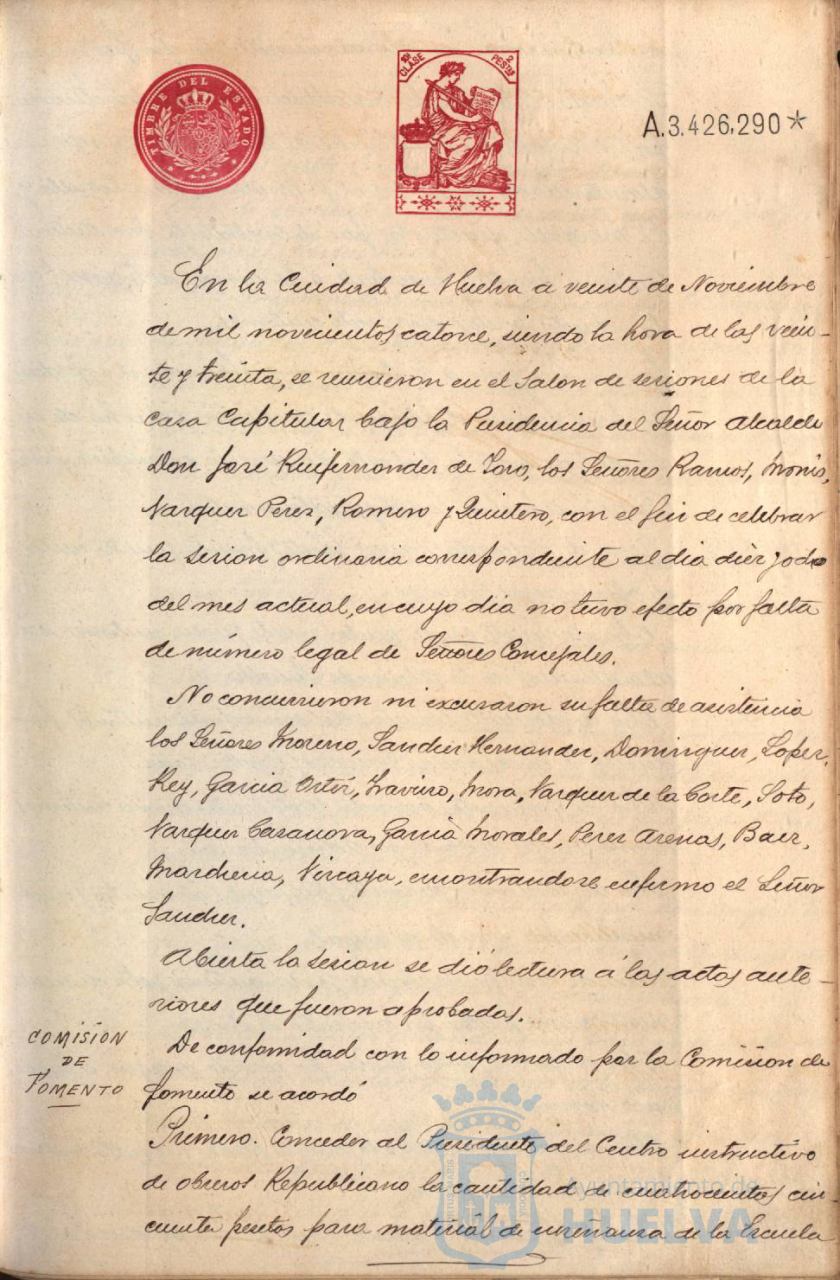 TIMBRE DEL ESTADO
10ª CLASE 2 PESTAS
A.3.426,290*
En la Ciudad de Huelva a veinte de Noviembre
de mil novecientos catorce, siendo la hora de las vein-
te y treinta, se reunieron en el Salon de sesiones de la
casa Capitular bajo la Presidencia del Señor Alcalde
Don José Ruifernandez de Toro, los Señores Ramos, Monis,
Vazquez Perez, Romero y Quintero, con el fin de celebrar
la sesion ordinaria correspondiente al dia diez y ocho
del mes actual, en cuyo dia no tuvo efecto por falta
de número legal de Señores Concejales.
No concurrieron ni excusaron su falta de asistencia
los Señores Moreno, Sanchez Hernandez, Dominguez, Lopez,
Rey, Garcia Ortiz, Traviso, Mora, Vazquez de la Corte, Soto,
Vazquez Casanova, Garcia Morales, Perez Arenas, Baez,
Marchena, Vizcaya, encontrandose enfermo el Señor
Sanchez.
Abierta la sesion se dió lectura á las actas ante-
riores que fueron aprobadas.
COMISION
DE
FOMENTO
De conformidad con lo informado por la Comision de
fomento se acordó
Primero. Conceder al Presidente del Centro instructivo
de obreros Republicano la cantidad de cuatrocientas cin-
cuenta pesetas para material de enseñanza de la Escuela
Ayuntamiento de
HUELVA